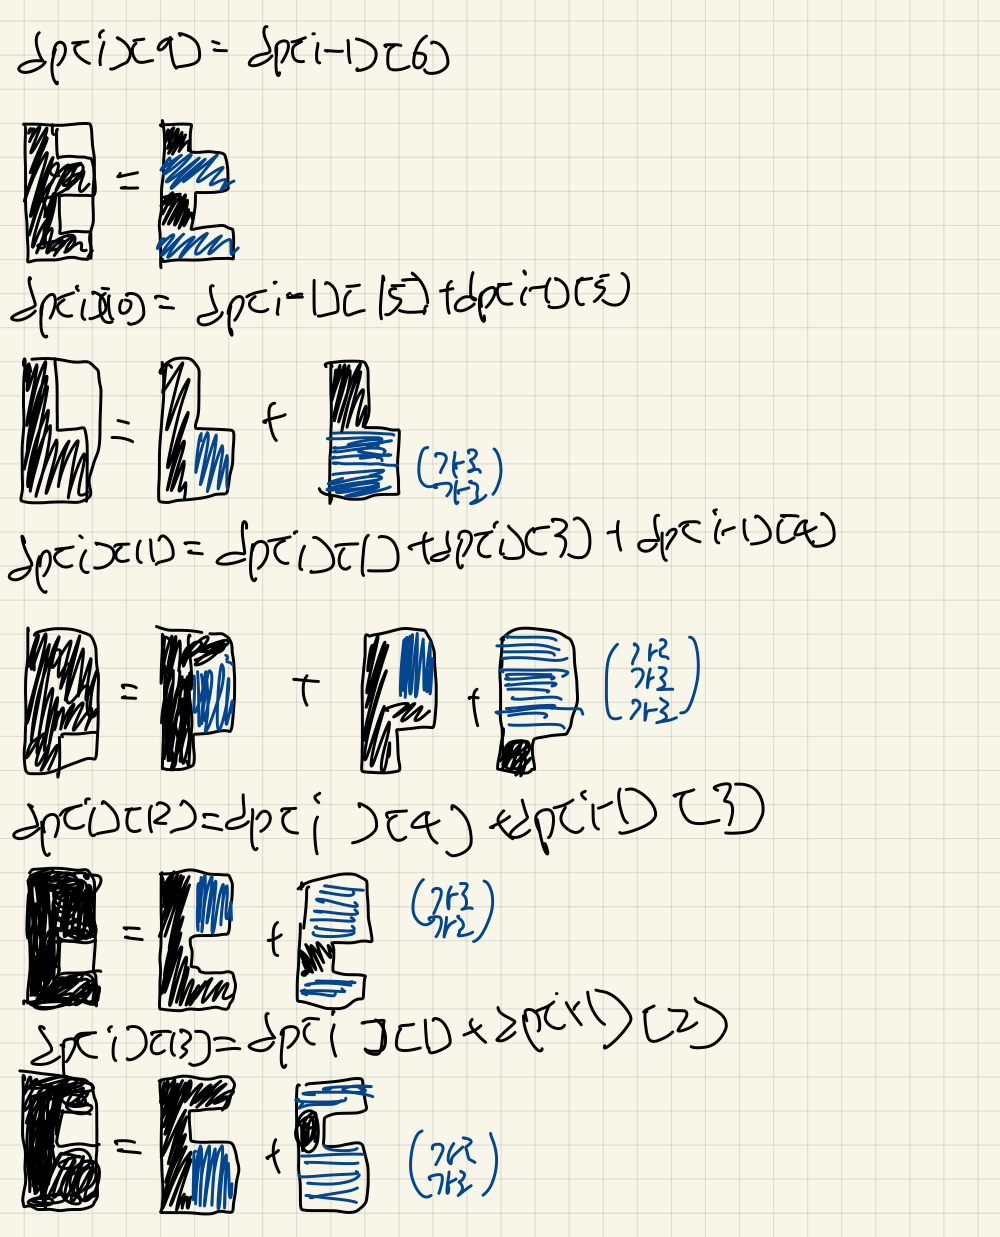 dp[i][9] = dp[i-1][6]
=
dp[i][10] = dp[i-1][15] + dp[i-1][5]
= + (가로
가로)
dp[i][11] = dp[i][1] + dp[i][3] + dp[i-1][4]
= + + (가로
가로
가로)
dp[i][12] = dp[i][4] + dp[i-1][3]
= + (가로
가로)
dp[i][13] = dp[i][1] + dp[i-1][2]
= + (가로
가로)